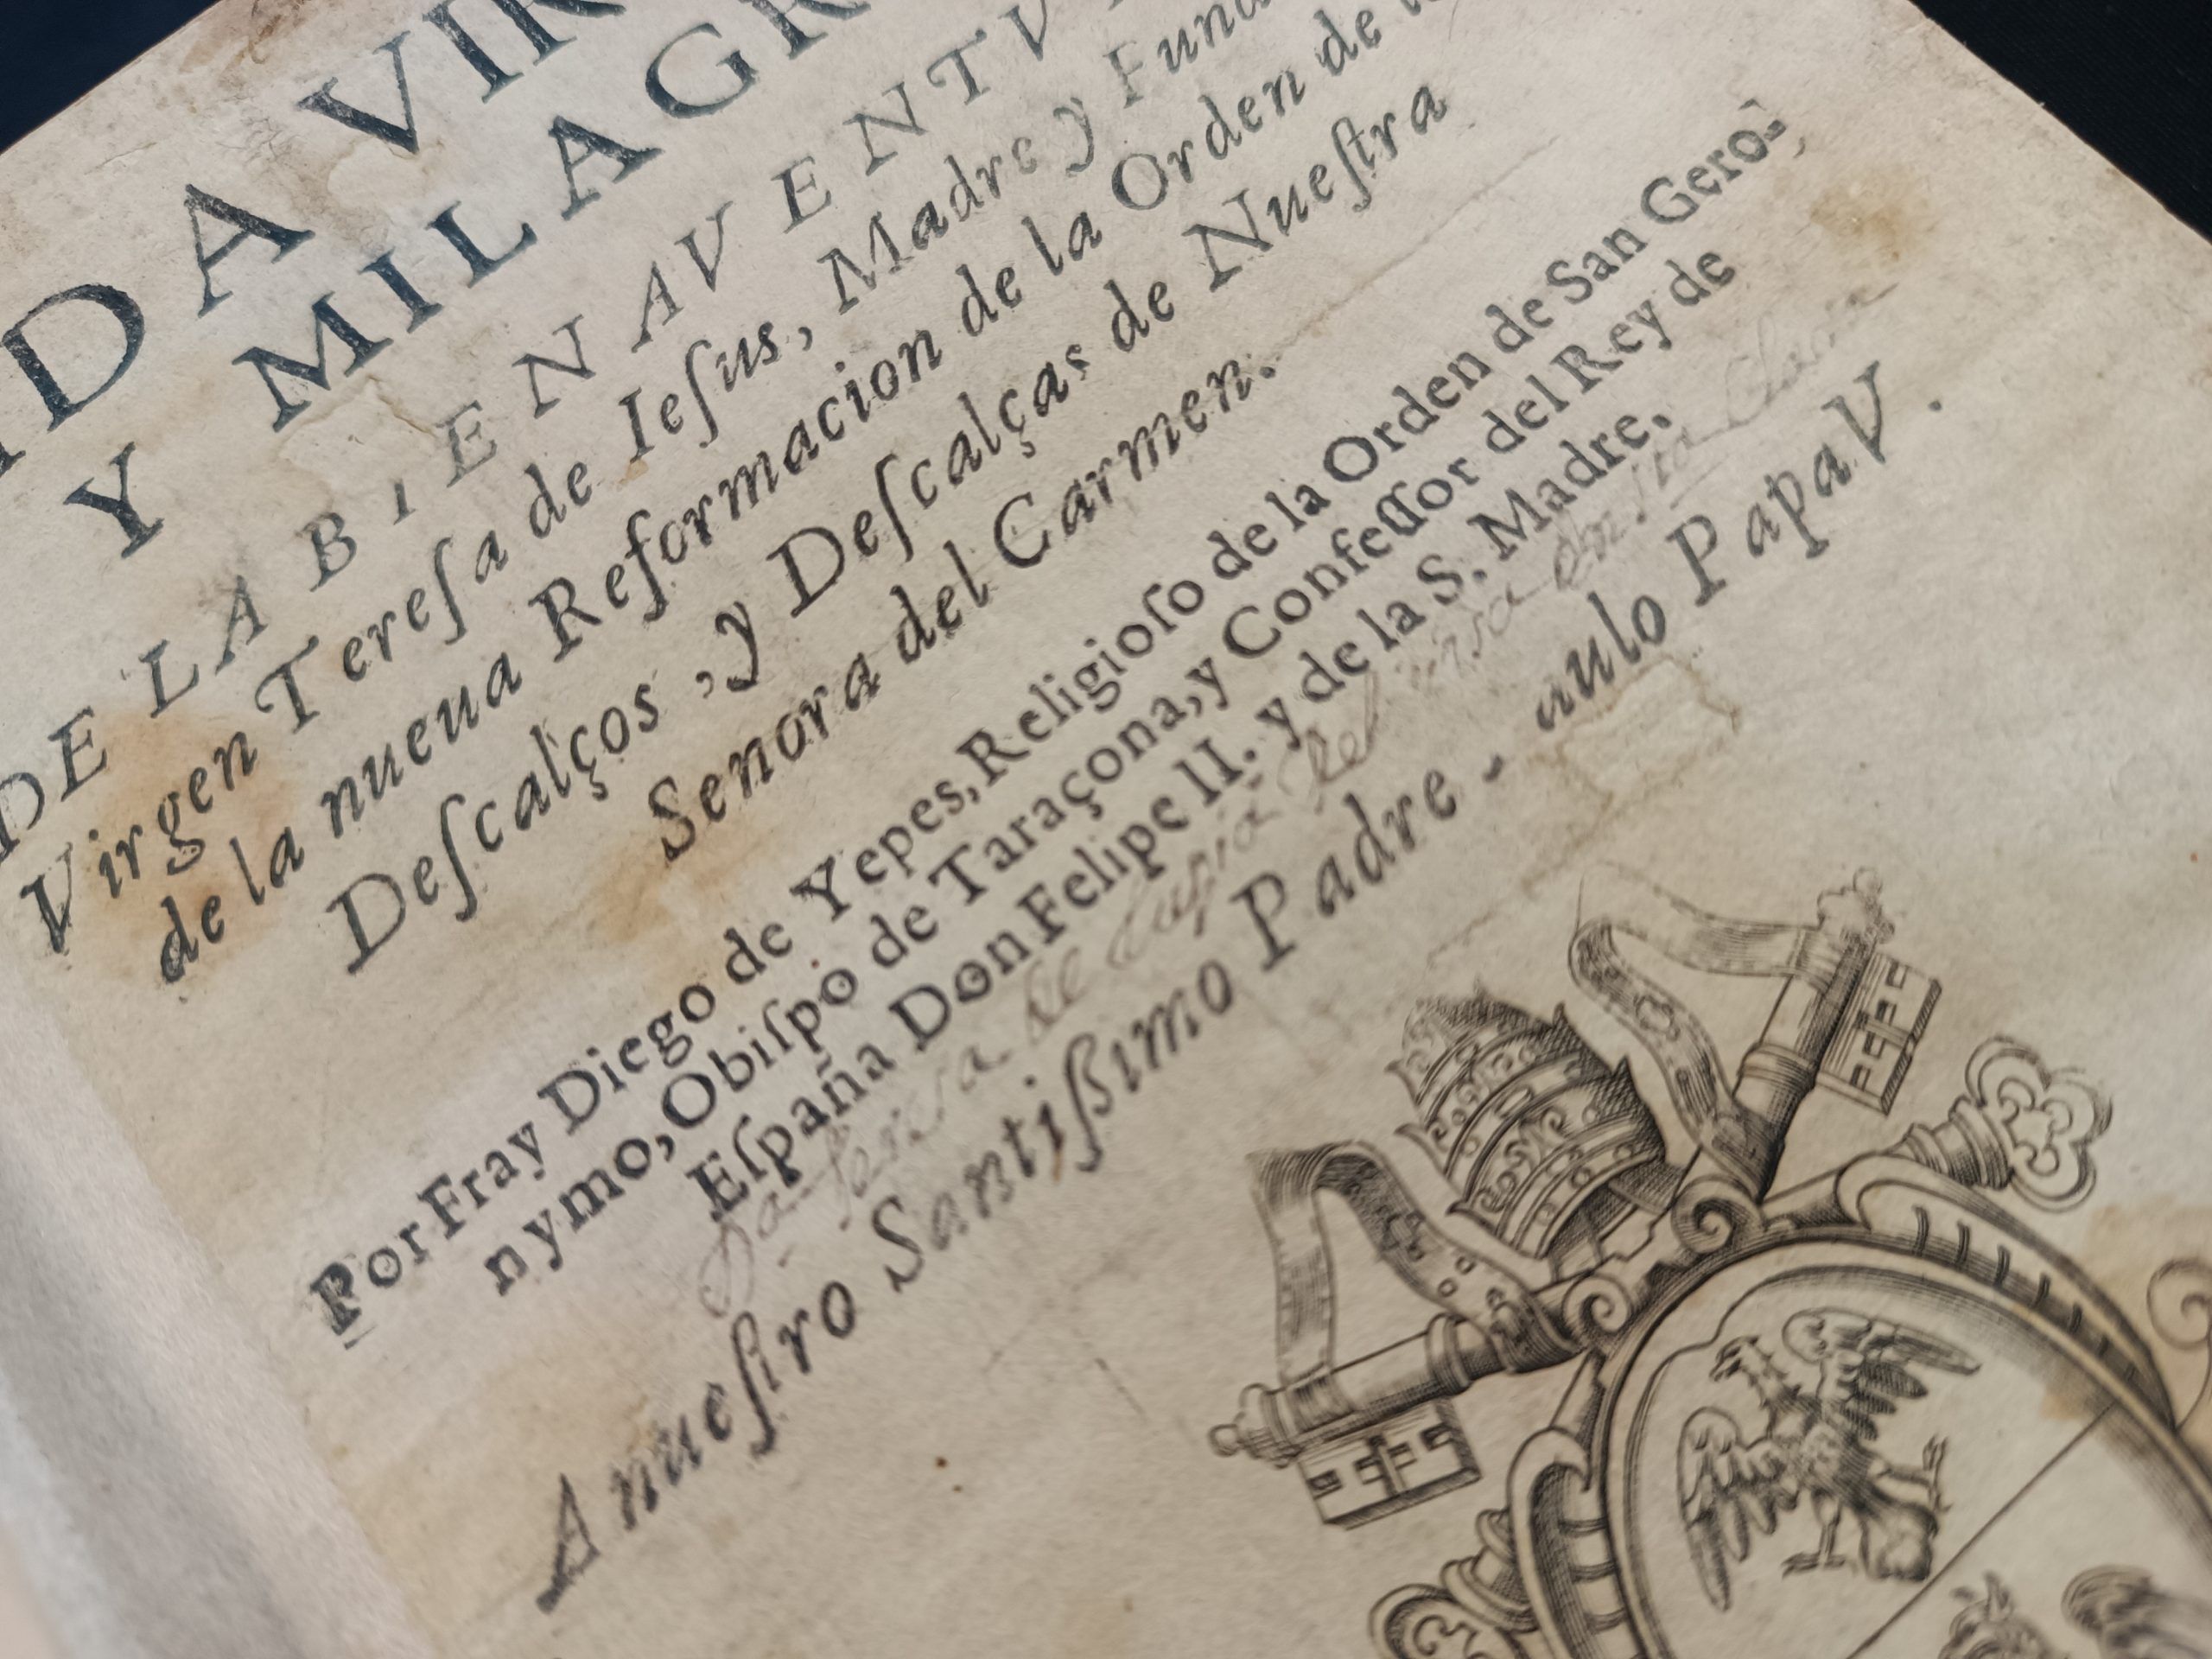 DA VIR
Y MILAGR
DE LA B, ENAVENTV
Virgen Tereſa de Ieſus, Madre y Fund
de la nueua Reformacion de la Orden de
Deſcalços ,y Deſcalças de Nueſtra
Senora del Carmen.
Por Fray Diego de Yepes, Religioſo de la Orden de San Gero-
nymo, Obiſpo de Taraçona, y Confeſſor del Rey de
Eſpaña Don Felipe II. y de la S. Madre.
A nueſtro Santiſsimo Padre - aulo Papa V.